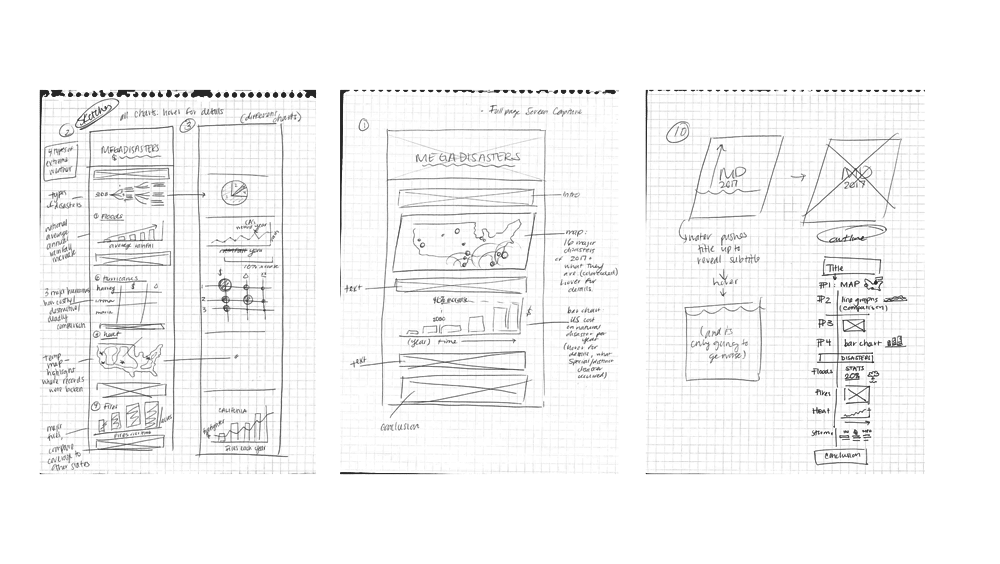 ②
Sketches
all charts hover for details
③
(different charts)
4 types of
extreme
weather
MEGADISASTERS
types
of disasters
① Floods
national
average
annual
rainfall
increase
average rainfall
② Hurricanes
Harvey
Irma
Maria
$
3 major hurricanes
how costly/
destructive/
deadly
comparison
③ heat
temp
map
highlights
where records
were broken
④ Fires
major
fires,
compare
coverage to
other states
$
1
2
3
CALIFORNIA
fires each year
①
• Full page Screen Capture
MEGADISASTERS
INTRO
map:
16 major
disasters
of 2017 +
what they
are
hover for
details
text
2000
$
(year) time
bar chart
US cost
in natural
disaster per
year
(hover for
details, what
disaster
occurred)
text
conclusion
⑩
MD
2017
→
MD
2017
water pushes
title up to
reveal subtitle
hover
(and its
only going to
get worse)
outline
Title
P1: MAP
P2 line graphs
(comparison)
P3
P4 bar chart
DISASTERS
Floods
STATS
20%
Fires
Heat
Storms
conclusion